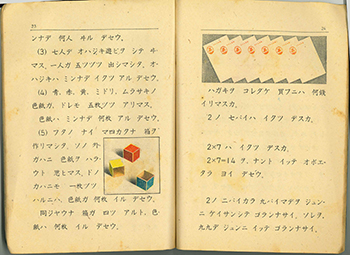 ンナデ 何人 ヰル デセウ。
(3) 七人デ オハジキ遊ビヲ シテ ヰ
マス。一人ガ 五ツヅツ 出シマシタ。オ
ハジキハ ミンナデ イクツ アル デセウ。
(4) 青、赤、黄、ミドリ、ムラサキノ
色紙ガ、ドレモ 五枚ヅツ アリマス。
色紙ハ ミンナデ 何枚 アル デセウ。
(5) フタノ ナイ マ四カクナ 箱ヲ
作リマシタ。ソノ 外
ガハニ 色紙ヲ ハラ
ウト 思ヒマス。ドノ
ガハニモ 一枚ヅツ
ハルニハ、色紙ガ 何枚 イル デセウ。
同ジヤウナ 箱ガ 四ツ アルト、色
紙ガ 何枚 イル デセウ。
ハガキヲ コレダケ 買フニハ 何錢
イリマスカ。
2ノ セバイハ イクツ デスカ。
2×7ハ イクツ デスカ。
2×7=14ヲ、ナント イッテ オボエ
タラ ヨイ デセウ。
2ノ 二バイカラ 九バイマデヲ ジュン
ニ ケイサンシテ ゴランナサイ。ソレヲ、
九九デ ジュンニ イッテ ゴランナサイ。